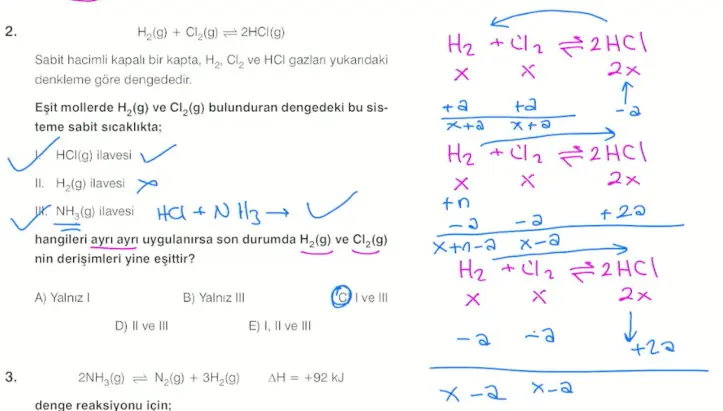 2.
H₂(g) + Cl₂(g) ⇌ 2HCl(g)
Sabit hacimli kapalı bir kapta, H₂, Cl₂ ve HCl gazları yukarıdaki
denkleme göre dengededir.
Eşit mollerde H₂(g) ve Cl₂(g) bulunduran dengedeki bu sis-
teme sabit sıcaklıkta;
I. HCl(g) ilavesi
II. H₂(g) ilavesi
III. NH₃(g) ilavesi HCl + NH₃ →
hangileri ayrı ayrı uygulanırsa son durumda H₂(g) ve Cl₂(g)
nin derişimleri yine eşittir?
A) Yalnız I B) Yalnız III C) I ve III
D) II ve III E) I, II ve III
3.
2NH₃(g) ⇌ N₂(g) + 3H₂(g) ΔH = +92 kJ
denge reaksiyonu için;
H₂ + Cl₂ ⇌ 2HCl
x x 2x
+a +a -a
x+a x+a
H₂ + Cl₂ ⇌ 2HCl
x x 2x
+n
-a -a +2a
x+n-a x-a
H₂ + Cl₂ ⇌ 2HCl
x x 2x
-a -a +2a
x-a x-a